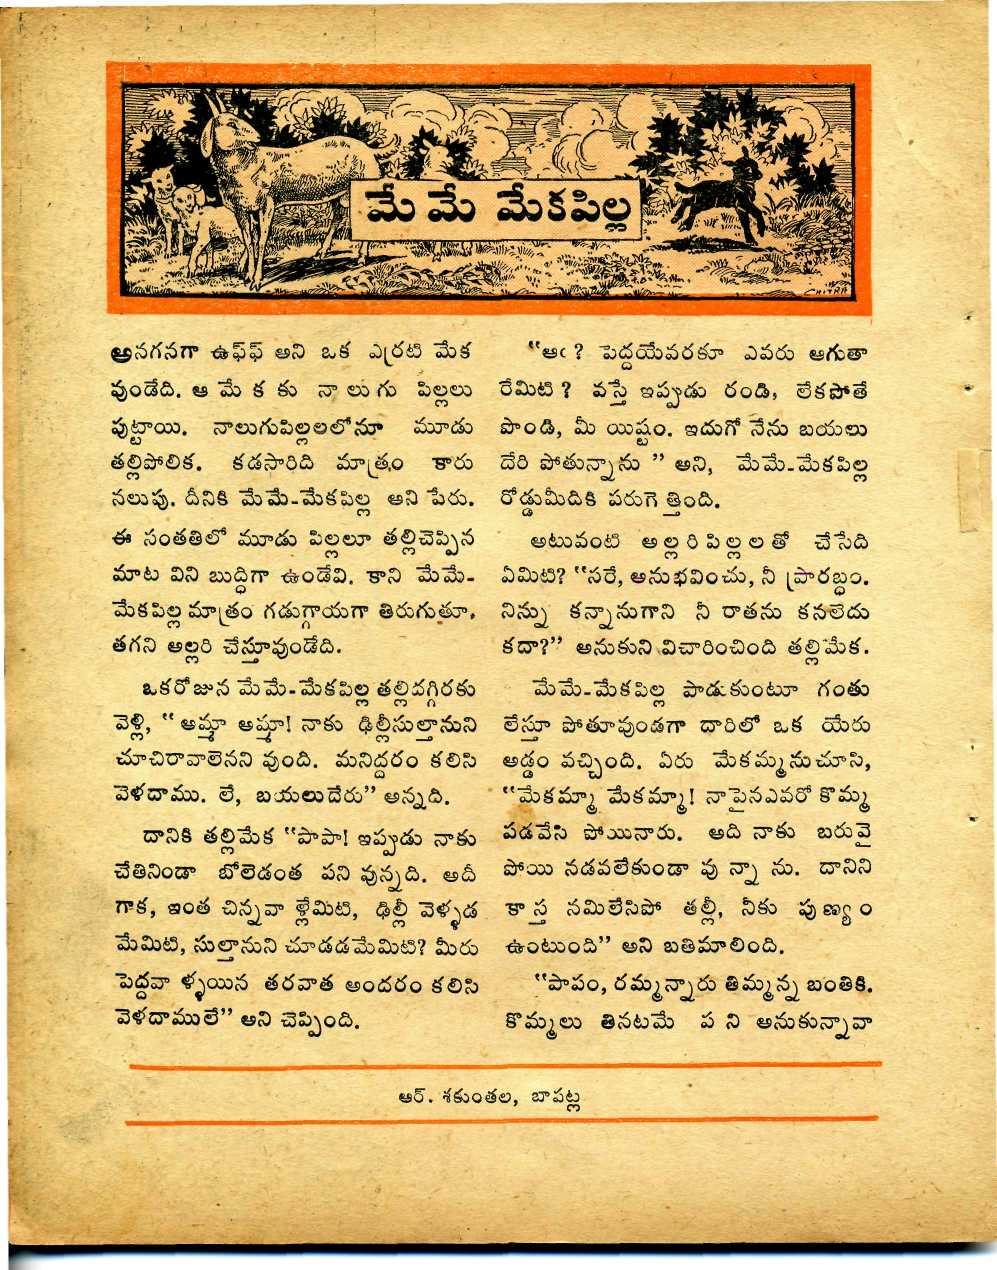 మే మే మేకపిల్ల
CHITRA
అనగనగా ఉఫ్‌ఫ్ అని ఒక ఎర్రటి మేక
వుండేది. ఆ మేకకు నాలుగు పిల్లలు
పుట్టాయి. నాలుగుపిల్లలలోనూ మూడు
తల్లిపోలిక. కడసారిది మాత్రం కారు
నలుపు. దీనికి మేమే-మేకపిల్ల అని పేరు.
ఈ సంతతిలో మూడు పిల్లలూ తల్లిచెప్పిన
మాట విని బుద్ధిగా ఉండేవి. కాని మేమే-
మేకపిల్ల మాత్రం గడుగ్గాయగా తిరుగుతూ,
తగని అల్లరి చేస్తూవుండేది.
ఒకరోజున మేమే-మేకపిల్ల తల్లిదగ్గిరకు
వెళ్లి, “అమ్మా అమ్మా! నాకు ఢిల్లీసుల్తానుని
చూచిరావాలెనని వుంది. మనిద్దరం కలిసి
వెళదాము. లే, బయలుదేరు” అన్నది.
దానికి తల్లిమేక “పాపా! ఇప్పుడు నాకు
చేతినిండా బోలెడంత పని వున్నది. అదీ
గాక, ఇంత చిన్నవా ళ్లేమిటి, ఢిల్లీ వెళ్ళడ
మేమిటి, సుల్తానుని చూడడమేమిటి? మీరు
పెద్దవా ళ్ళయిన తరవాత అందరం కలిసి
వెళదాములే” అని చెప్పింది.
“ఆఁ? పెద్దయేవరకూ ఎవరు ఆగుతా
రేమిటి? వస్తే ఇప్పుడు రండి, లేకపోతే
పొండి, మీ యిష్టం. ఇదుగో నేను బయలు
దేరి పోతున్నాను” అని, మేమే-మేకపిల్ల
రోడ్డుమీదికి పరుగెత్తింది.
అటువంటి అల్లరిపిల్లలతో చేసేది
ఏమిటి? “సరే, అనుభవించు, నీ ప్రారబ్ధం.
నిన్ను కన్నానుగాని నీ రాతను కనలేదు
కదా?” అనుకుని విచారించింది తల్లిమేక.
మేమే-మేకపిల్ల పాడుకుంటూ గంతు
లేస్తూ పోతూవుండగా దారిలో ఒక యేరు
అడ్డం వచ్చింది. ఏరు మేకమ్మనుచూసి,
“మేకమ్మా మేకమ్మా! నాపైనఎవరో కొమ్మ
పడవేసి పోయినారు. అది నాకు బరువై
పోయి నడవలేకుండా వున్నాను. దానిని
కాస్త నమిలేసిపో తల్లీ, నీకు పుణ్యం
ఉంటుంది” అని బతిమాలింది.
“పాపం, రమ్మన్నారు తిమ్మన్న బంతికి.
కొమ్మలు తినటమే పని అనుకున్నావా
ఆర్. శకుంతల, బాపట్ల